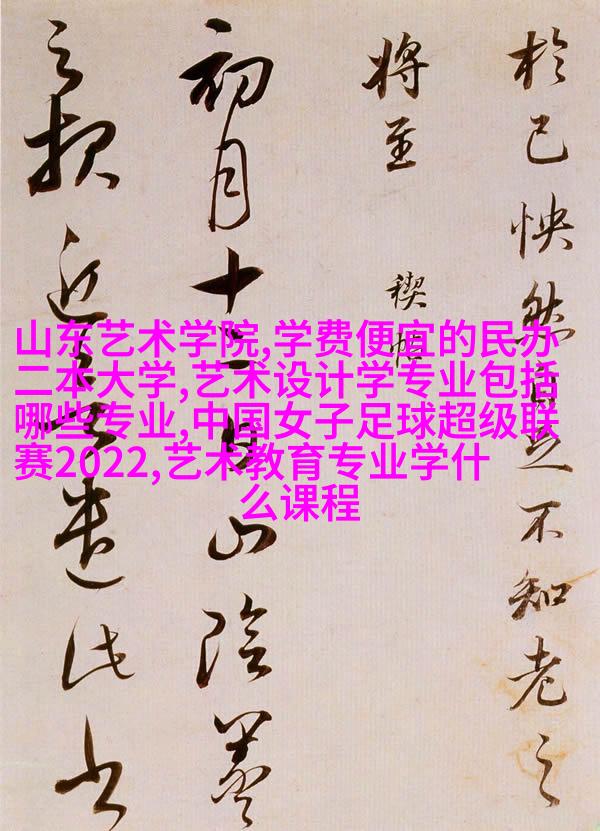 於己怏然自足不知老之
将至
禊帖
初月十二日山陰羲
之報近遣此書
山东艺术学院,学费便宜的民办
二本大学,艺术设计学专业包括
哪些专业,中国女子足球超级联
赛2022,艺术教育专业学什
么课程